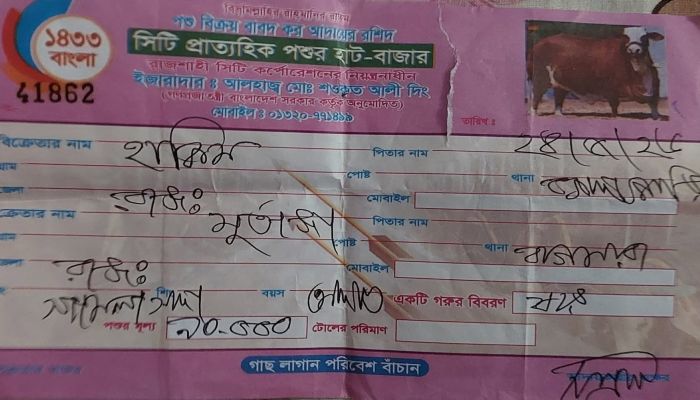 বিসমিল্লাহির রাহমানির রাহিম
পশু বিক্রয় বাবদ কর আদায়ের রশিদ
১৪৩৩ বাংলা
সিটি প্রাত্যহিক পশুর হাট-বাজার
রাজশাহী সিটি কর্পোরেশনের নিয়ন্ত্রনাধীন
ইজারাদার ঃ আলহাজ্ব মোঃ শওকত আলী দিং
41862
(গণপ্রজাতন্ত্রী বাংলাদেশ সরকার কর্তৃক অনুমোদিত)
মোবাইল ঃ ০১৩২০-৭৭১৪৯৯
তারিখ ঃ
বিক্রেতার নাম হাকিম পিতার নাম
গ্রাম পোষ্ট থানা
জেলা রাজঃ মোবাইল
ক্রেতার নাম মুর্তজা পিতার নাম
গ্রাম পোষ্ট থানা বাগমারা
জেলা রাজঃ মোবাইল
বয়স একটি গরুর বিবরণ
পশুর মূল্য টোলের পরিমাণ
গাছ লাগান পরিবেশ বাঁচান